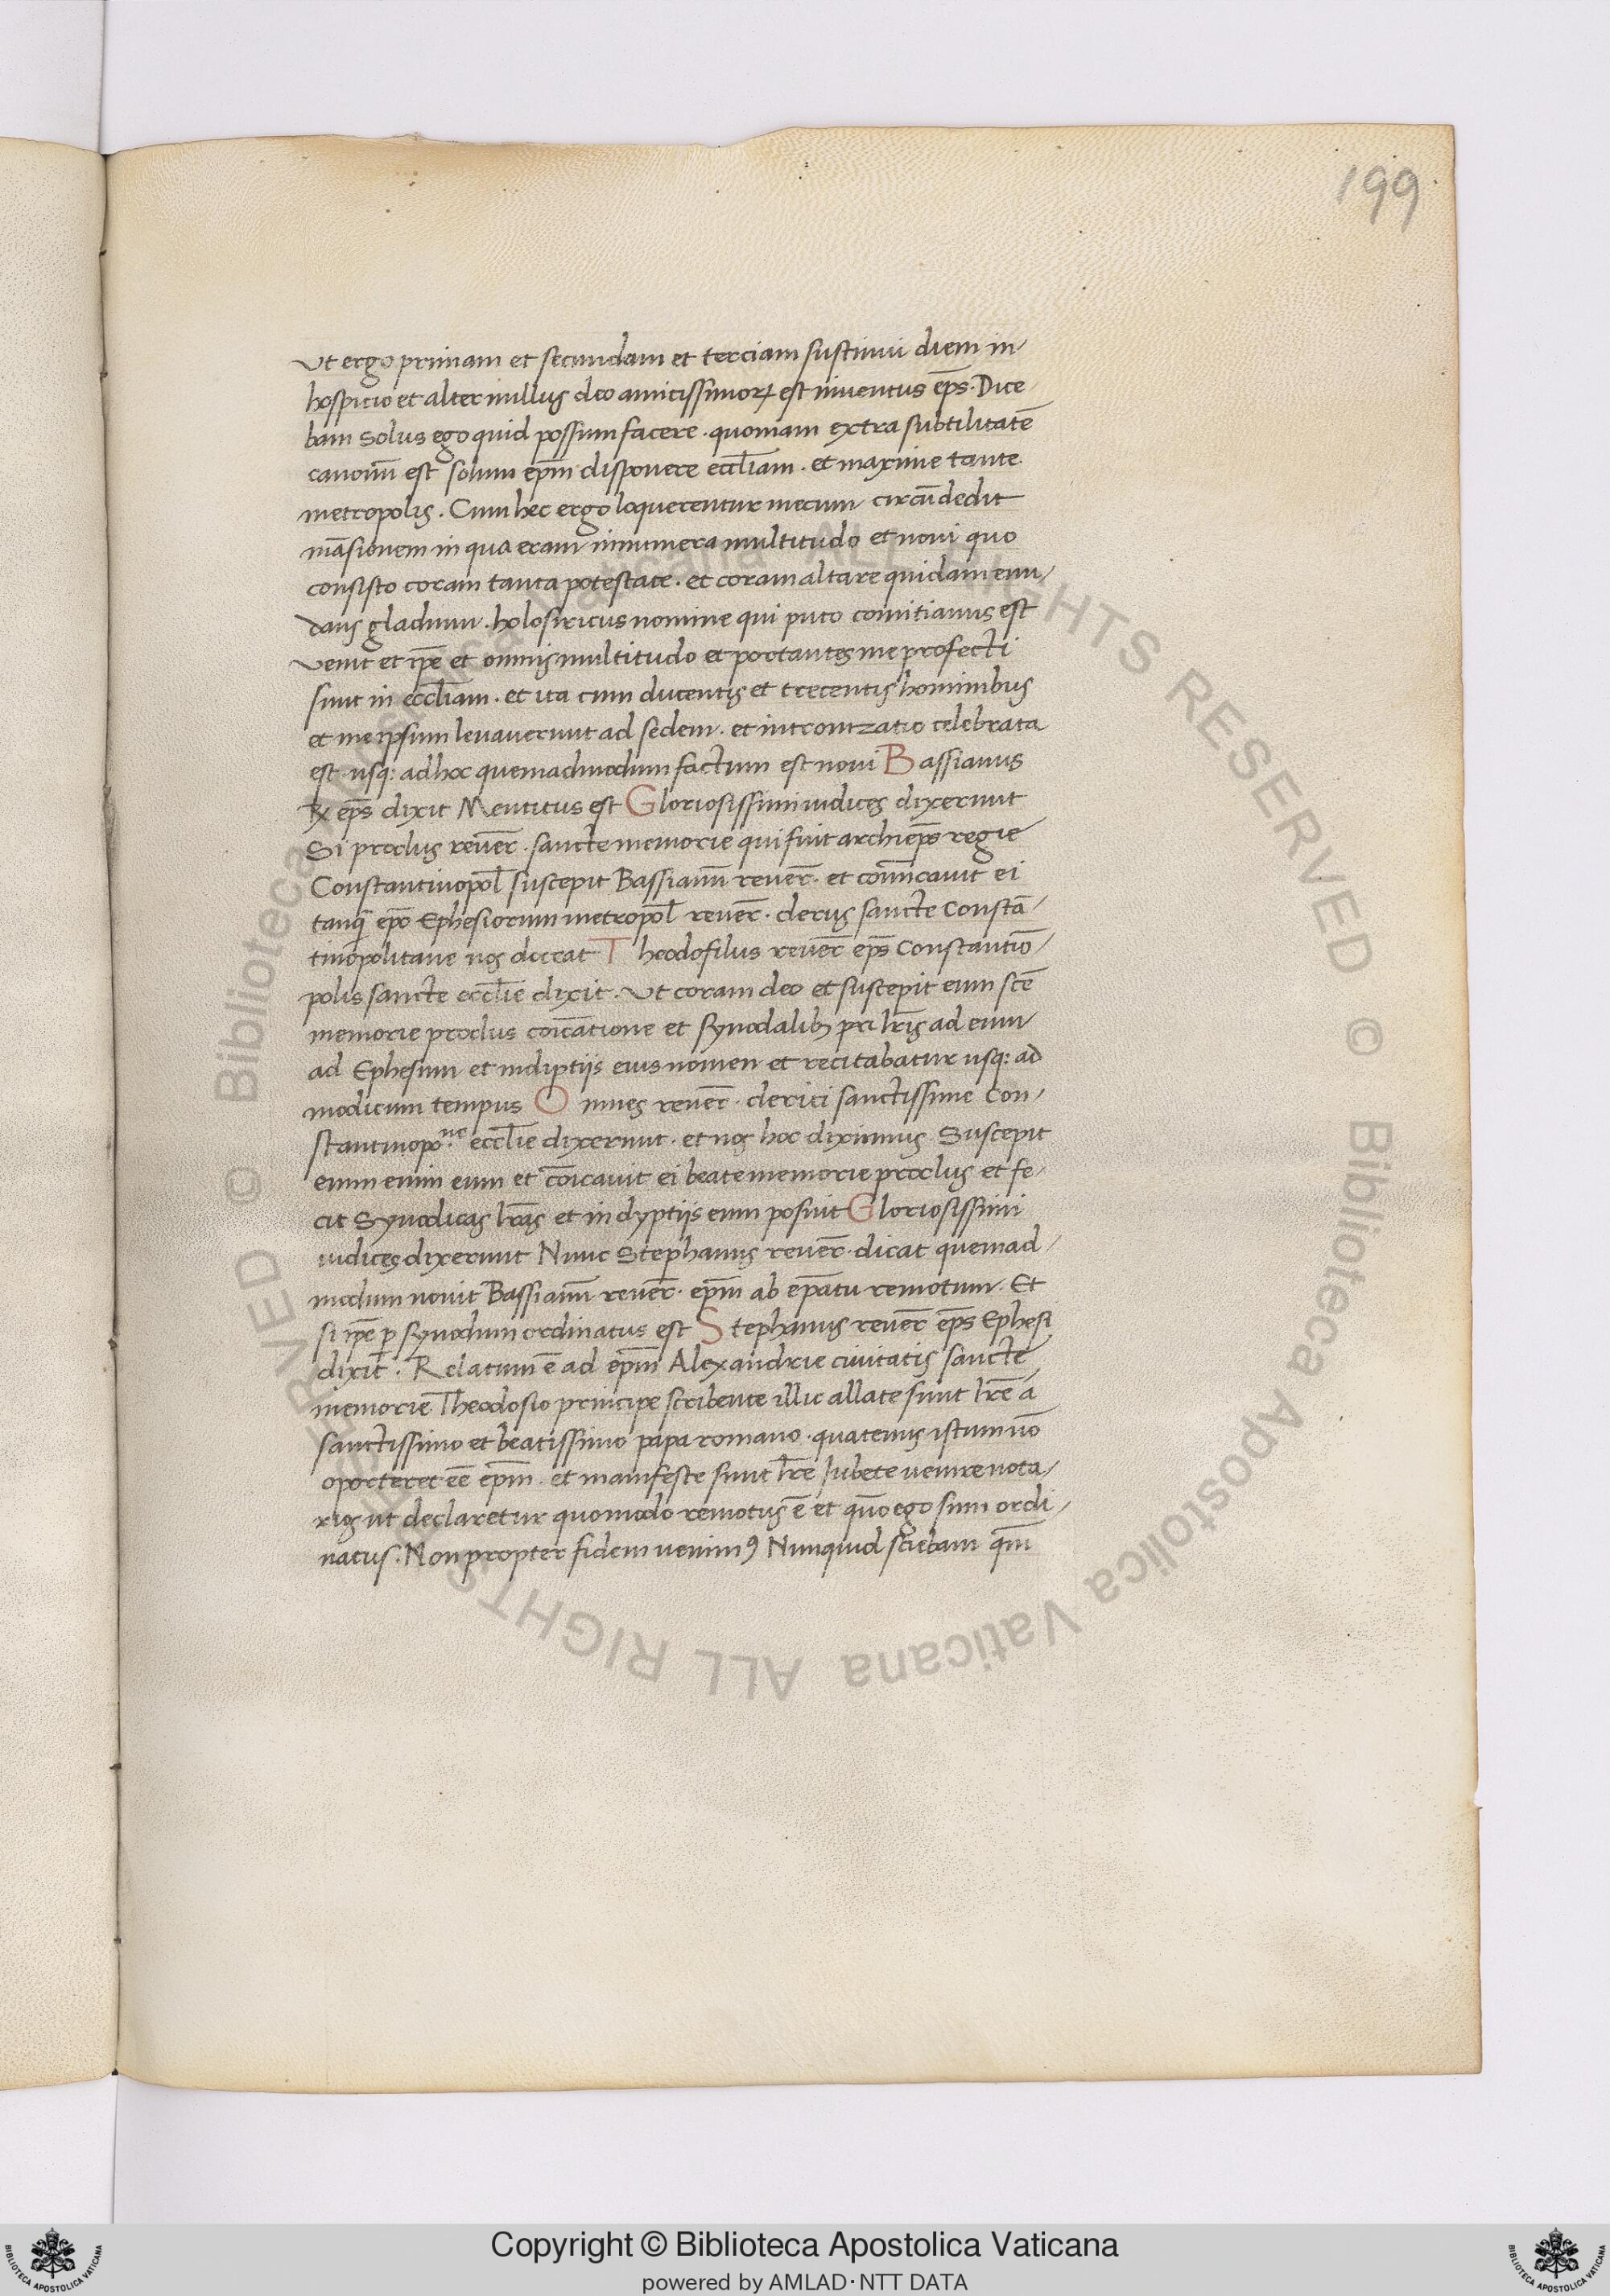 199
Ut ergo primam et secundam et terciam sustinui diem in-
hospicio et alter nullus deo amicissimoꝝ est inventus ep̅s. Dice-
bam solus ego quid possum facere. quoniam extra subtilitate̅
canonu̅ est solum ep̅m disponere eccl̅iam. et maxime tante
metropolis. Cum hec ergo loquerentur mecum circu̅dedit
ma̅sionem in qua eram innumera multitudo et novi quo
consisto coram tanta potestate. et coram altare quidam enu-
dans gladium. holosiricus nomine qui puto comitianus est
venit et ip̅e et omnis multitudo et portantes me profecti
sunt in eccl̅iam. et ita cum ducentis et trecentis hominibus
et me ipsum levaverunt ad sedem. et introntzatio celebrata
est. usq: ad hoc quemadmodum factum est novi Bassianus
ep̅s dixit Mentitus est Gloriosissimi iudices dixerunt
Si proclus reuer̅. sancte memorie qui fuit archiep̅s regie
Constantinopol̅ suscepit Bassianu̅ reuer̅. et com̅icauit ei
tanq̅ ep̅o Ephesiorum metropol̅ reuer̅. clerus sancte Consta̅-
tinopolitane nos doceat Theodofilus reuer̅ ep̅s Constantino̅-
polis sancte eccl̅ie dixit. Ut coram deo et suscepit eum sce̅
memorie proclus coic̅atione et synodalib; pri lr̅is ad eum
ad Ephesum et in diptiis eius nomen et recitabatur usq: ad
modicum tempus Omnes reuer̅. clerici sanctissime Con-
stantinopo.ne eccl̅ie dixerunt. et nos hoc diximus. Suscepit
enim enim eum et co̅icauit ei beate memorie proclus et fe-
cit Synodicas lr̅as et in dyptiis eum posuit Gloriosissimi
iudices dixerunt Nunc Stephanus reuer̅. dicat quemad-
modum novit Bassianu̅ reuer̅. ep̅m ab ep̅atu remotum. Et
si ip̅e p̱ synodum ordinatus est Stephanus reuer̅ ep̅s Ephesi
dixit. Relatum e̅ ad ep̅m Alexandrie ciuitatis sancte
memorie Theodosio principe scribente illic allate sunt lr̅e a
sanctissimo et beatissimo papa romano. quatenus istum no̅
oporteret ee̅ ep̅m. et manifeste sunt lr̅e Jubete venire nota-
rios ut declaretur quomodo remotus e̅ et quo̅ ego sum ordi-
natus. Non propter fidem venimꝰ Nunquid sciebam qm̅
Copyright © Biblioteca Apostolica Vaticana
powered by AMLAD·NTT DATA
© Biblioteca Apostolica Vaticana ALL RIGHTS RESERVED © Biblioteca Apostolica Vaticana ALL RIGHTS RESERVED
BIBLIOTECA APOSTOLICA VATICANA
BIBLIOTECA APOSTOLICA VATICANA